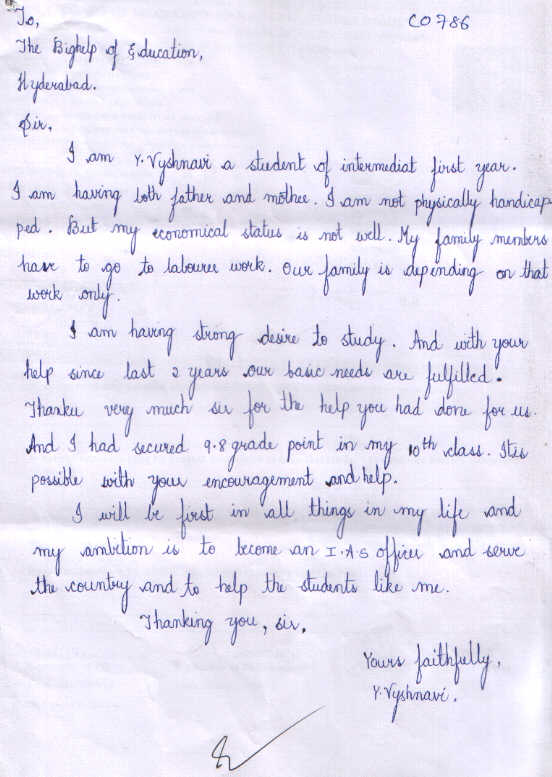 To,
CO786
The Bighelp of Education,
Hyderabad.
Sir,
I am Y.Vyshnavi a student of intermediat first year.
I am having both father and mother. I am not physically handicap
ped. But my economical status is not well. My family members
have to go to labourer work. Our family is depending on that
work only.
I am having strong desire to study. And with your
help since last 2 years our basic needs are fulfilled.
Thanku very much sir for the help you had done for us.
And I had secured 9.8 grade point in my 10th class. Itis
possible with your encouragement and help.
I will be first in all things in my life and
my ambition is to become an I.A.S officer and serve
the country and to help the students like me.
Thanking you, sir,
Yours faithfully,
Y.Vyshnavi.